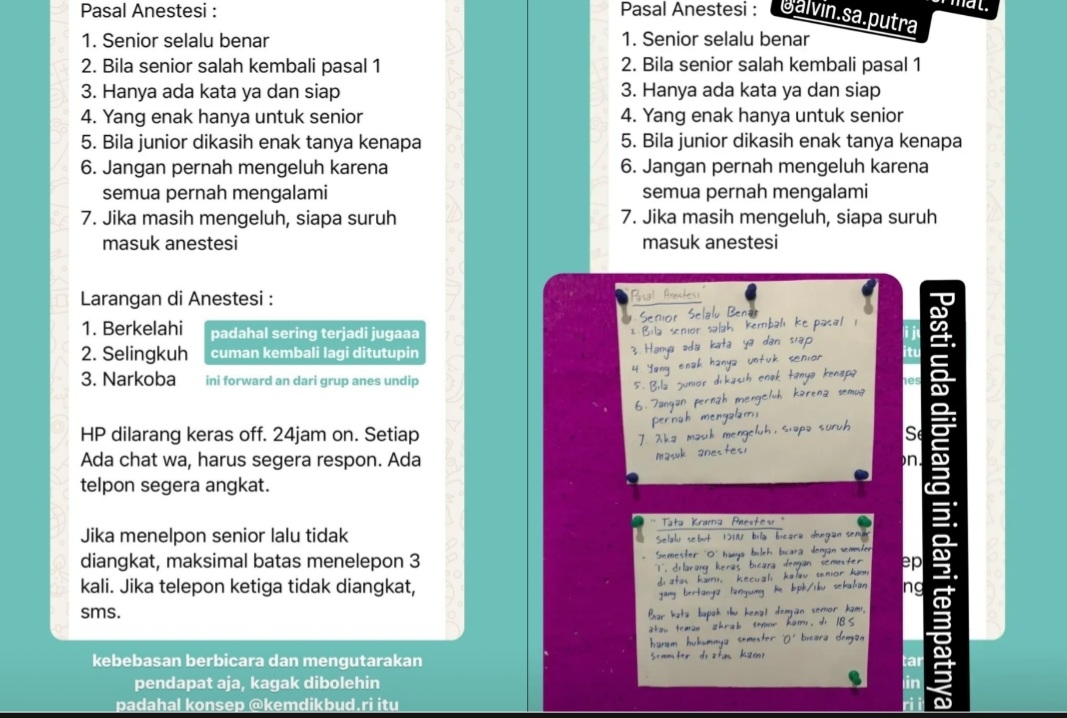 Pasal Anestesi :
1. Senior selalu benar
2. Bila senior salah kembali pasal 1
3. Hanya ada kata ya dan siap
4. Yang enak hanya untuk senior
5. Bila junior dikasih enak tanya kenapa
6. Jangan pernah mengeluh karena
semua pernah mengalami
7. Jika masih mengeluh, siapa suruh
masuk anestesi
Larangan di Anestesi :
1. Berkelahi
2. Selingkuh
3. Narkoba
padahal sering terjadi jugaaa
cuman kembali lagi ditutupin
ini forward an dari grup anes undip
HP dilarang keras off. 24jam on. Setiap
Ada chat wa, harus segera respon. Ada
telpon segera angkat.
Jika menelpon senior lalu tidak
diangkat, maksimal batas menelepon 3
kali. Jika telepon ketiga tidak diangkat,
sms.
kebebasan berbicara dan mengutarakan
pendapat aja, kagak dibolehin
padahal konsep @kemdikbud.ri itu
@alvin.sa.putra
Pasal Anestesi :
1. Senior selalu benar
2. Bila senior salah kembali pasal 1
3. Hanya ada kata ya dan siap
4. Yang enak hanya untuk senior
5. Bila junior dikasih enak tanya kenapa
6. Jangan pernah mengeluh karena
semua pernah mengalami
7. Jika masih mengeluh, siapa suruh
masuk anestesi
"Pasal Anestesi"
1. Senior Selalu Benar
2. Bila senior salah kembali ke pasal 1
3. Hanya ada kata ya dan siap
4. Yang enak hanya untuk senior
5. Bila junior dikasih enak tanya kenapa
6. Jangan pernah mengeluh karena semua
pernah mengalami
7. Jika masih mengeluh, siapa suruh
masuk anestesi
"Tata Krama Anestesi"
Selalu sebut IZIN bila bicara dengan senior
Semester '0' hanya boleh bicara dengan semester
'1', dilarang keras bicara dengan semester
di atas kami, kecuali kalau senior kami
yang bertanya langsung ke bpk/ibu sekalian
kata bapak ibu kenal dengan senior kami,
atau teman akrab senior kami, di IBS
haram hukumnya semester '0' bicara dengan
Semester di atas kami
Pasti uda dibuang ini dari tempatnya